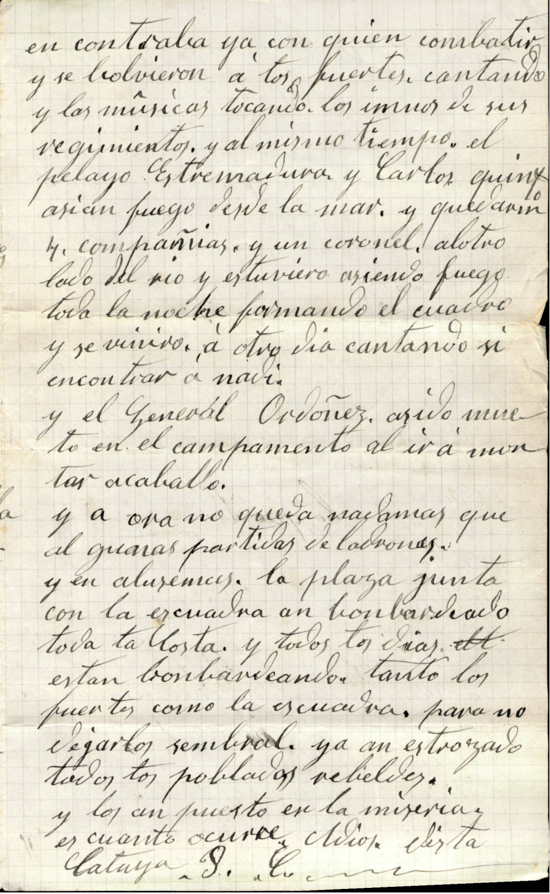 en contraba ya con quien combatir
y se bolvieron á los fuertes. cantando
y las músicas tocando. los imnos de sus
regimientos. y al mismo tiempo. el
pelayo Estremadura. y Carlos quinto
asian fuego desde la mar. y quedaron
4. compañias. y un coronel. alotro
lado del rio y estuviero asiendo fuego
toda la noche formando el cuadro
y se viniro. á otro dia cantando si
encontrar á nadi.
y el General Ordoñez. asido mue-
to en el campamento al ir á mon
tar acaballo.
y a ora no queda nadamas que
al gunas partidas de ladrones.
y en alusemas. la plaza junta
con la escuadra an bonbardeado
toda la Costa. y todos los dias
estan bonbardeando. tanto los
fuertes como la escuadra. para no
dejarlos sembral. ya an estrozado
todos los poblados rebeldes.
y los an puesto en la miseria.
es cuanto ocurre. Adios. dista